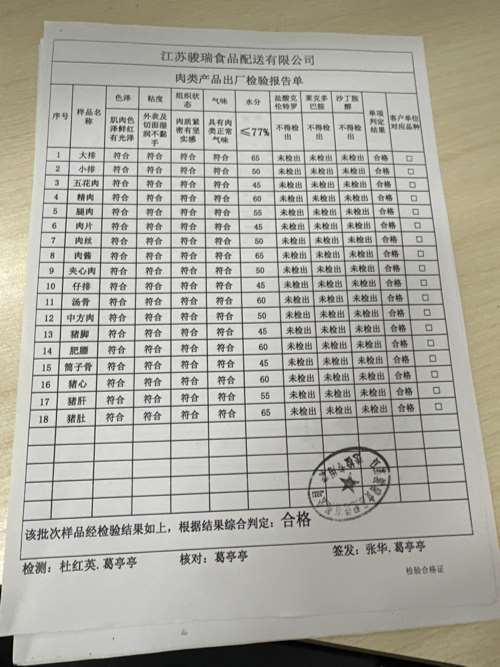 江苏骏瑞食品配送有限公司
肉类产品出厂检验报告单
序号 样品名称 色泽 粘度 组织状态 气味 水分 盐酸克伦特罗 莱克多巴胺 沙丁胺醇 单项判定结果 客户单位对应品种
肌肉色泽鲜红有光泽 外表及切面湿润不黏手 肉质紧密有坚实感 具有肉类正常气味 ≤77% 不得检出 不得检出 不得检出
1 大排 符合 符合 符合 符合 65 未检出 未检出 未检出 合格 □
2 小排 符合 符合 符合 符合 50 未检出 未检出 未检出 合格 □
3 五花肉 符合 符合 符合 符合 45 未检出 未检出 未检出 合格 □
4 精肉 符合 符合 符合 符合 60 未检出 未检出 未检出 合格 □
5 腿肉 符合 符合 符合 符合 55 未检出 未检出 未检出 合格 □
6 肉片 符合 符合 符合 符合 45 未检出 未检出 未检出 合格 □
7 肉丝 符合 符合 符合 符合 50 未检出 未检出 未检出 合格 □
8 肉酱 符合 符合 符合 符合 60 未检出 未检出 未检出 合格 □
9 夹心肉 符合 符合 符合 符合 50 未检出 未检出 未检出 合格 □
10 仔排 符合 符合 符合 符合 45 未检出 未检出 未检出 合格 □
11 汤骨 符合 符合 符合 符合 60 未检出 未检出 未检出 合格 □
12 中方肉 符合 符合 符合 符合 50 未检出 未检出 未检出 合格 □
13 猪脚 符合 符合 符合 符合 45 未检出 未检出 未检出 合格 □
14 肥膘 符合 符合 符合 符合 60 未检出 未检出 未检出 合格 □
15 筒子骨 符合 符合 符合 符合 45 未检出 未检出 未检出 合格 □
16 猪心 符合 符合 符合 符合 60 未检出 未检出 未检出 合格 □
17 猪肝 符合 符合 符合 符合 55 未检出 未检出 未检出 合格 □
18 猪肚 符合 符合 符合 符合 65 未检出 未检出 未检出 合格 □
该批次样品经检验结果如上，根据结果综合判定：合格
检测：杜红英,葛亭亭 核对：葛亭亭 签发：张华,葛亭亭
检验合格证